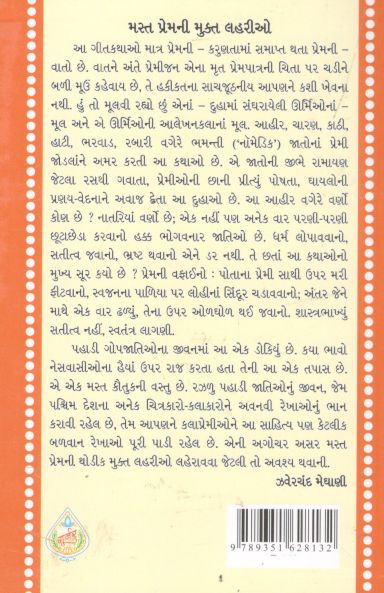 મસ્ત પ્રેમની મુક્ત લહરીઓ
આ ગીતકથાઓ માત્ર પ્રેમની – કરુણતામાં સમાપ્ત થતા પ્રેમની –
વાતો છે. વાતને અંતે પ્રેમીજન એના મૃત પ્રેમપાત્રની ચિતા પર ચડીને
બળી મૂઉં કહેવાય છે, તે હકીકતના સાચજૂઠનીય આપણને કશી ખેવના
નથી. હું તો મૂલવી રહ્યો છું એનાં – દુહામાં સંઘરાયેલી ઊર્મિઓનાં –
મૂલ અને એ ઊર્મિઓની આલેખનકલાનાં મૂલ. આહીર, ચારણ, કાઠી,
હાટી, ભરવાડ, રબારી વગેરે ભમન્તી ('નૉમેડિક') જાતોનાં પ્રેમી
જોડલાંને અમર કરતી આ કથાઓ છે. એ જાતોની જીભે રામાયણ
જેટલા રસથી ગવાતા, પ્રેમીઓની છાની પ્રીત્યું પોષતા, ઘાયલોની
પ્રણય-વેદનાને અવાજ દેતા આ દુહાઓ છે. આ આહીર વગેરે વર્ણો
કોણ છે ? નાતરિયાં વર્ણો છે; એક નહીં પણ અનેક વાર પરણી-પરણી
છૂટાછેડા કરવાનો હક્ક ભોગવનાર જાતિઓ છે. ધર્મ લોપાવવાનો,
સતીત્વ જવાનો, ભ્રષ્ટ થવાનો એને ડર નથી. તે છતાં આ કથાઓનો
મુખ્ય સૂર કયો છે ? પ્રેમની વફાઈનો : પોતાના પ્રેમી સાથી ઉપર મરી
ફીટવાનો, સ્વજનના પાળિયા પર લોહીનાં સિંદૂર ચડાવવાનો; અંતર જેને
માથે એક વાર ઢળ્યું, તેના ઉપર ઓળઘોળ થઈ જવાનો. શાસ્ત્રભાખ્યું
સતીત્વ નહીં, સ્વતંત્ર લાગણી.
પહાડી ગોપજાતિઓના જીવનમાં આ એક ડોકિયું છે. કયા ભાવો
નેસવાસીઓના હૈયાં ઉપર રાજ કરતા હતા તેની આ એક તપાસ છે.
એ એક મસ્ત કૌતુકની વસ્તુ છે. રઝળુ પહાડી જાતિઓનું જીવન, જેમ
પશ્ચિમ દેશના અનેક ચિત્રકારો-કલાકારોને અવનવી રેખાઓનું ભાન
કરાવી રહેલ છે, તેમ આપણને કલાપ્રેમીઓને આ સાહિત્ય પણ કેટલીક
બળવાન રેખાઓ પૂરી પાડી રહેલ છે. એની અગોચર અસર મસ્ત
પ્રેમની થોડીક મુક્ત લહરીઓ લહેરાવવા જેટલી તો અવશ્ય થવાની.
ઝવેરચંદ મેઘાણી
9 789351 628132
1